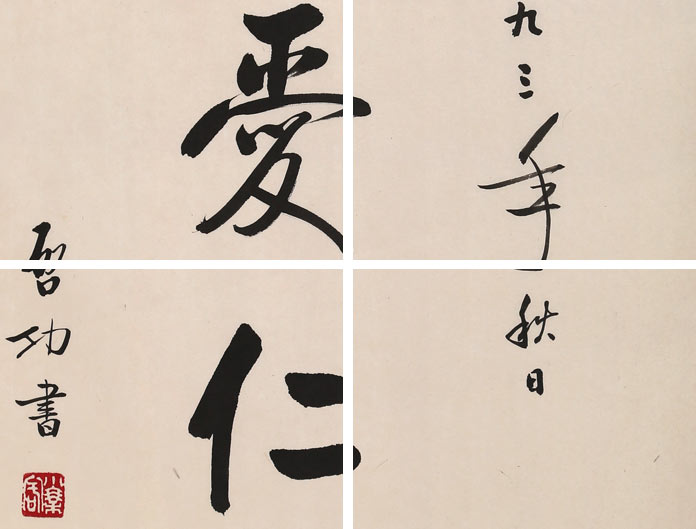 九三年秋日
愛仁
启功書